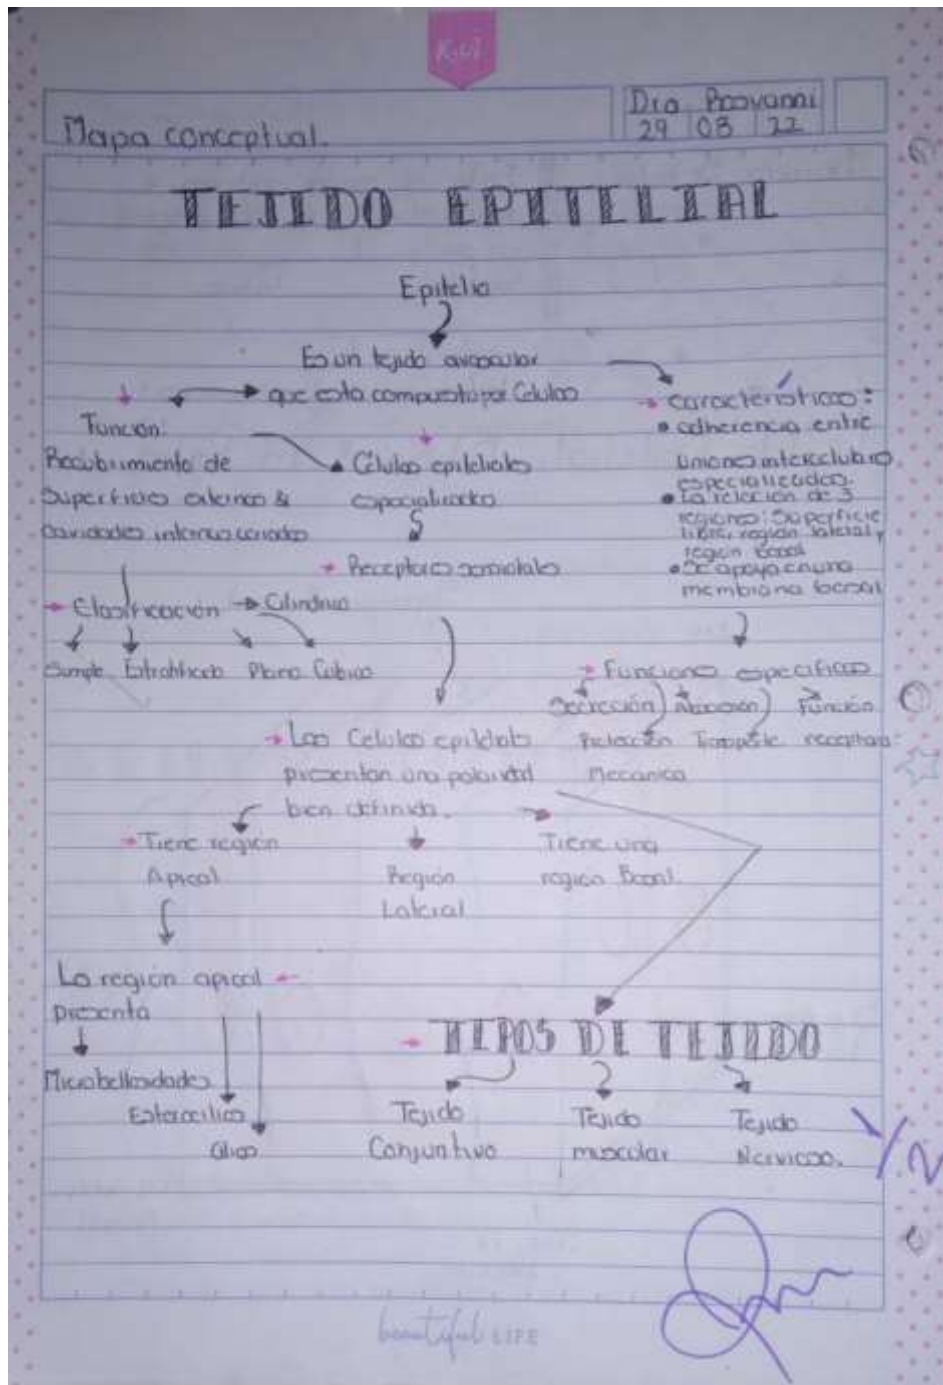 Kiut
Mapa conceptual.
Dra Poovanni
29 08 22
TEJIDO EPITELIAL
Epitelio
Es un tejido avascular
que esta compuesto por Celulas
Funcion:
Recubrimiento de
superficies externas &
cavidades internas
Celulas epiteliales
especializadas
Receptores sensoriales
características:
adherencia entre
uniones
especializadas.
La relación de 3
regiones: Superficie
libre, región lateral y
región Basal
Se apoya en una
membrana basal
Clasificación
Cilindrico
Simple Estratificado Plano Cubico
Funciones especificas
Secreción Absorción Función
Protección Transporte receptora
Mecanica
Las Celulas epiteliales
presentan una polaridad
bien definida.
Tiene región
Apical
Región
Lateral
Tiene una
región Basal.
La región apical
presenta
Microbellosidades
Estereocilios
Cilios
TIPOS DE TEJIDO
Tejido
Conjuntivo
Tejido
muscular
Tejido
Nervioso.
beautiful LIFE